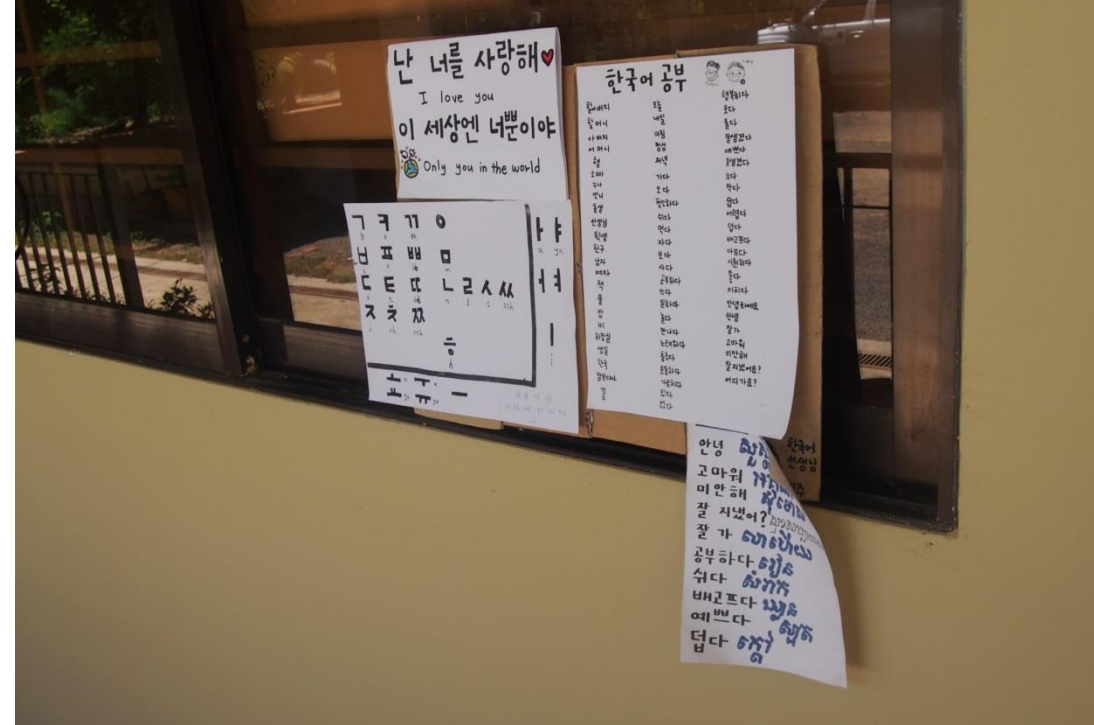 난 너를 사랑해
I love you
이 세상엔 너뿐이야
Only you in the world
ㄱ ㅋ ㄲ ㅇ
ㅂ ㅍ ㅃ ㅁ
ㄷ ㅌ ㄸ ㄴ ㄹ ㅅ ㅆ
ㅈ ㅊ ㅉ
ㅎ
ㅏ ㅑ
ㅓ ㅕ
ㅣ
ㅗ ㅛ ㅜ ㅠ ㅡ
한국어 공부
할아버지
할머니
아버지
어머니
형
오빠
누나
언니
동생
선생님
학생
친구
남자
여자
책
물
밥
비
화장실
생일
한국
캄보디아
오늘
내일
아침
점심
저녁
가다
오다
쉬다
먹다
자다
보다
사다
공부하다
쓰다
말하다
놀다
만나다
노래하다
춤추다
운동하다
가르치다
있다
없다
행복하다
웃다
울다
잘생겼다
예쁘다
못생겼다
크다
작다
쉽다
어렵다
덥다
배고프다
아프다
시원하다
좋다
지치다
안녕하세요
안녕
잘가
고마워
미안해
잘지냈어요?
어디가요?
안녕 សួស្តី
고마워
미안해 សុំទោស
잘 지냈어?
잘 가 លាហើយ
공부하다 រៀន
쉬다 សំរាក
배고프다 ឃ្លាន
예쁘다 ស្អាត
덥다 ក្តៅ
한국어
선생님